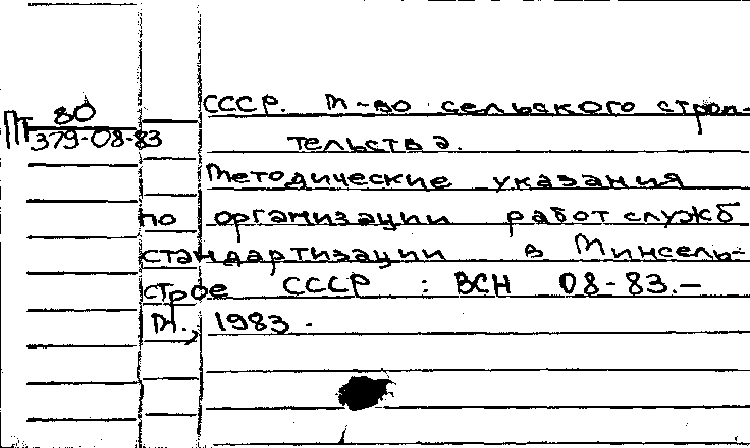 ПТ 80
379-08-83
СССР. М-во сельского строи-
тельства.
Методические указания
по организации работ служб
стандартизации в Минсель-
строе СССР : ВСН 08-83.-
М., 1983.